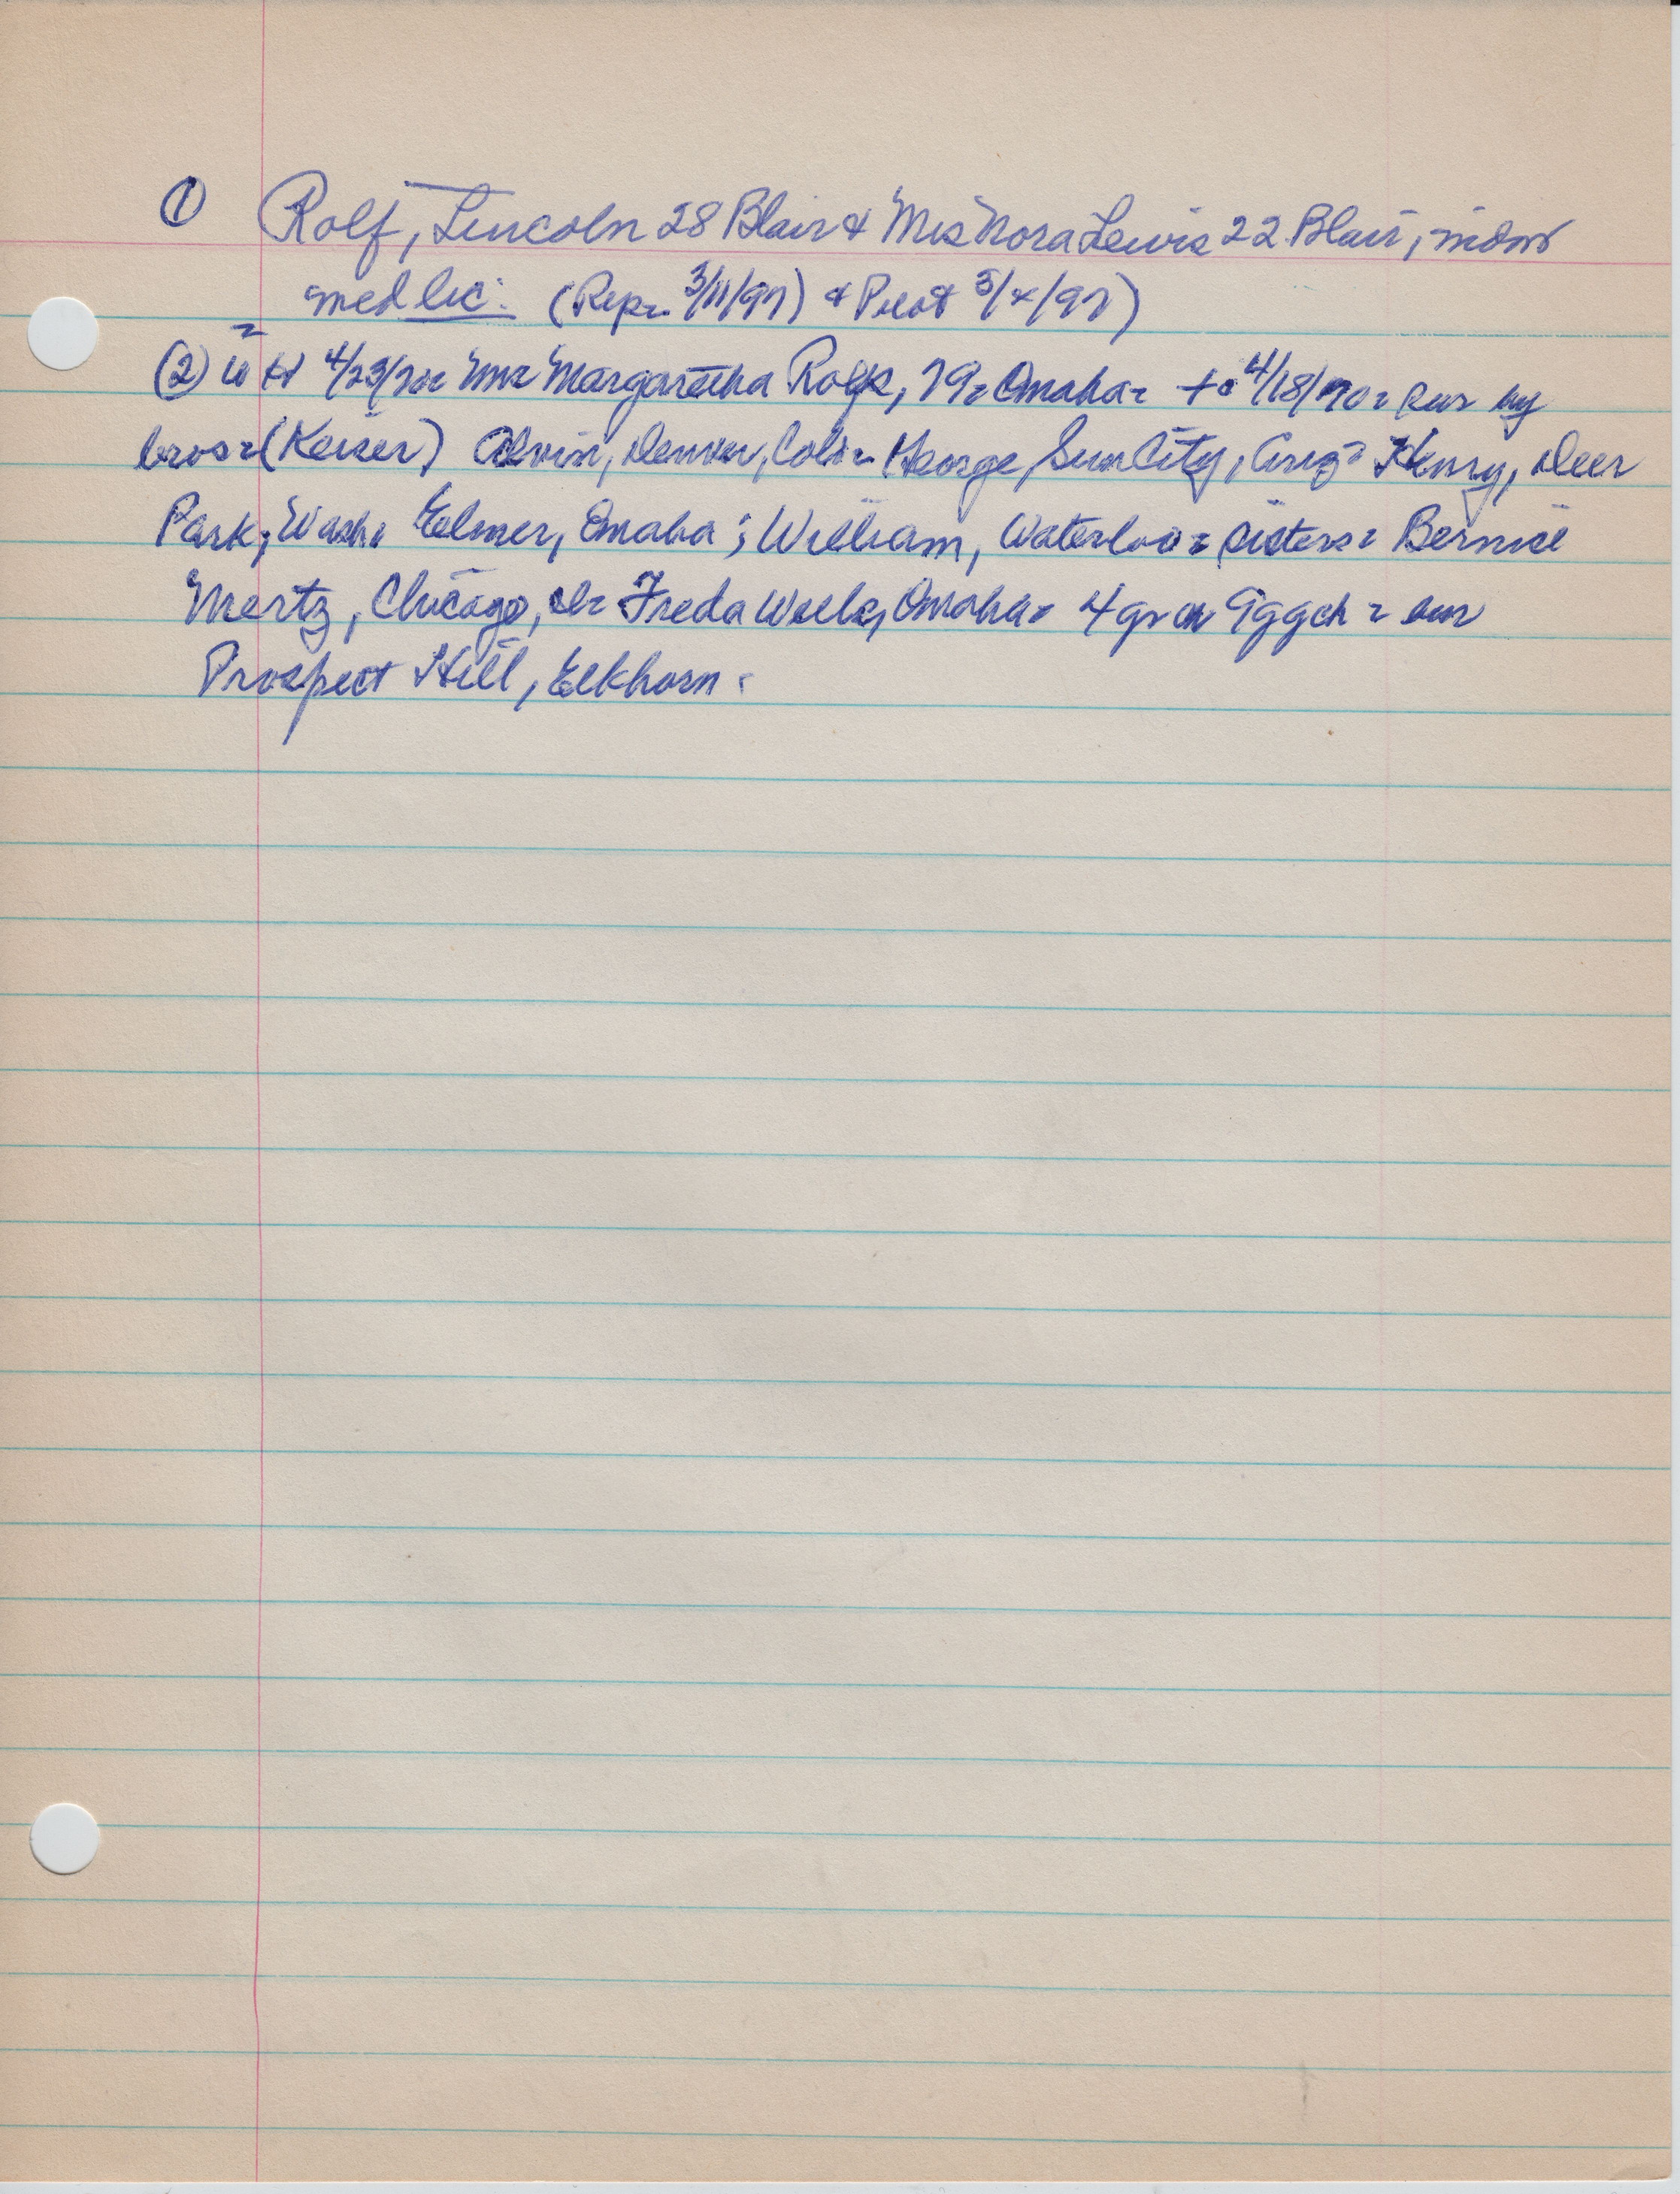 ① Rolf, Lincoln 28 Blair & Mrs Nora Lewis 22 Blair,
med lic. (Rep. 3/11/97) & Pilot 3/x/97)
(2) W H 4/23/70 Mrs Margaretha Rolf, 79, Omaha - + 4/18/70 - sur by
bros - (Keiser) Alvin, Denver, Colo - George, Sun City, Ariz - Henry, Deer
Park, Wash. Elmer, Omaha; William, Waterloo - sisters - Bernice
Mertz, Chicago, Freda Weeks, Omaha - 4 gr ch 9 ggch - bur
Prospect Hill, Elkhorn.